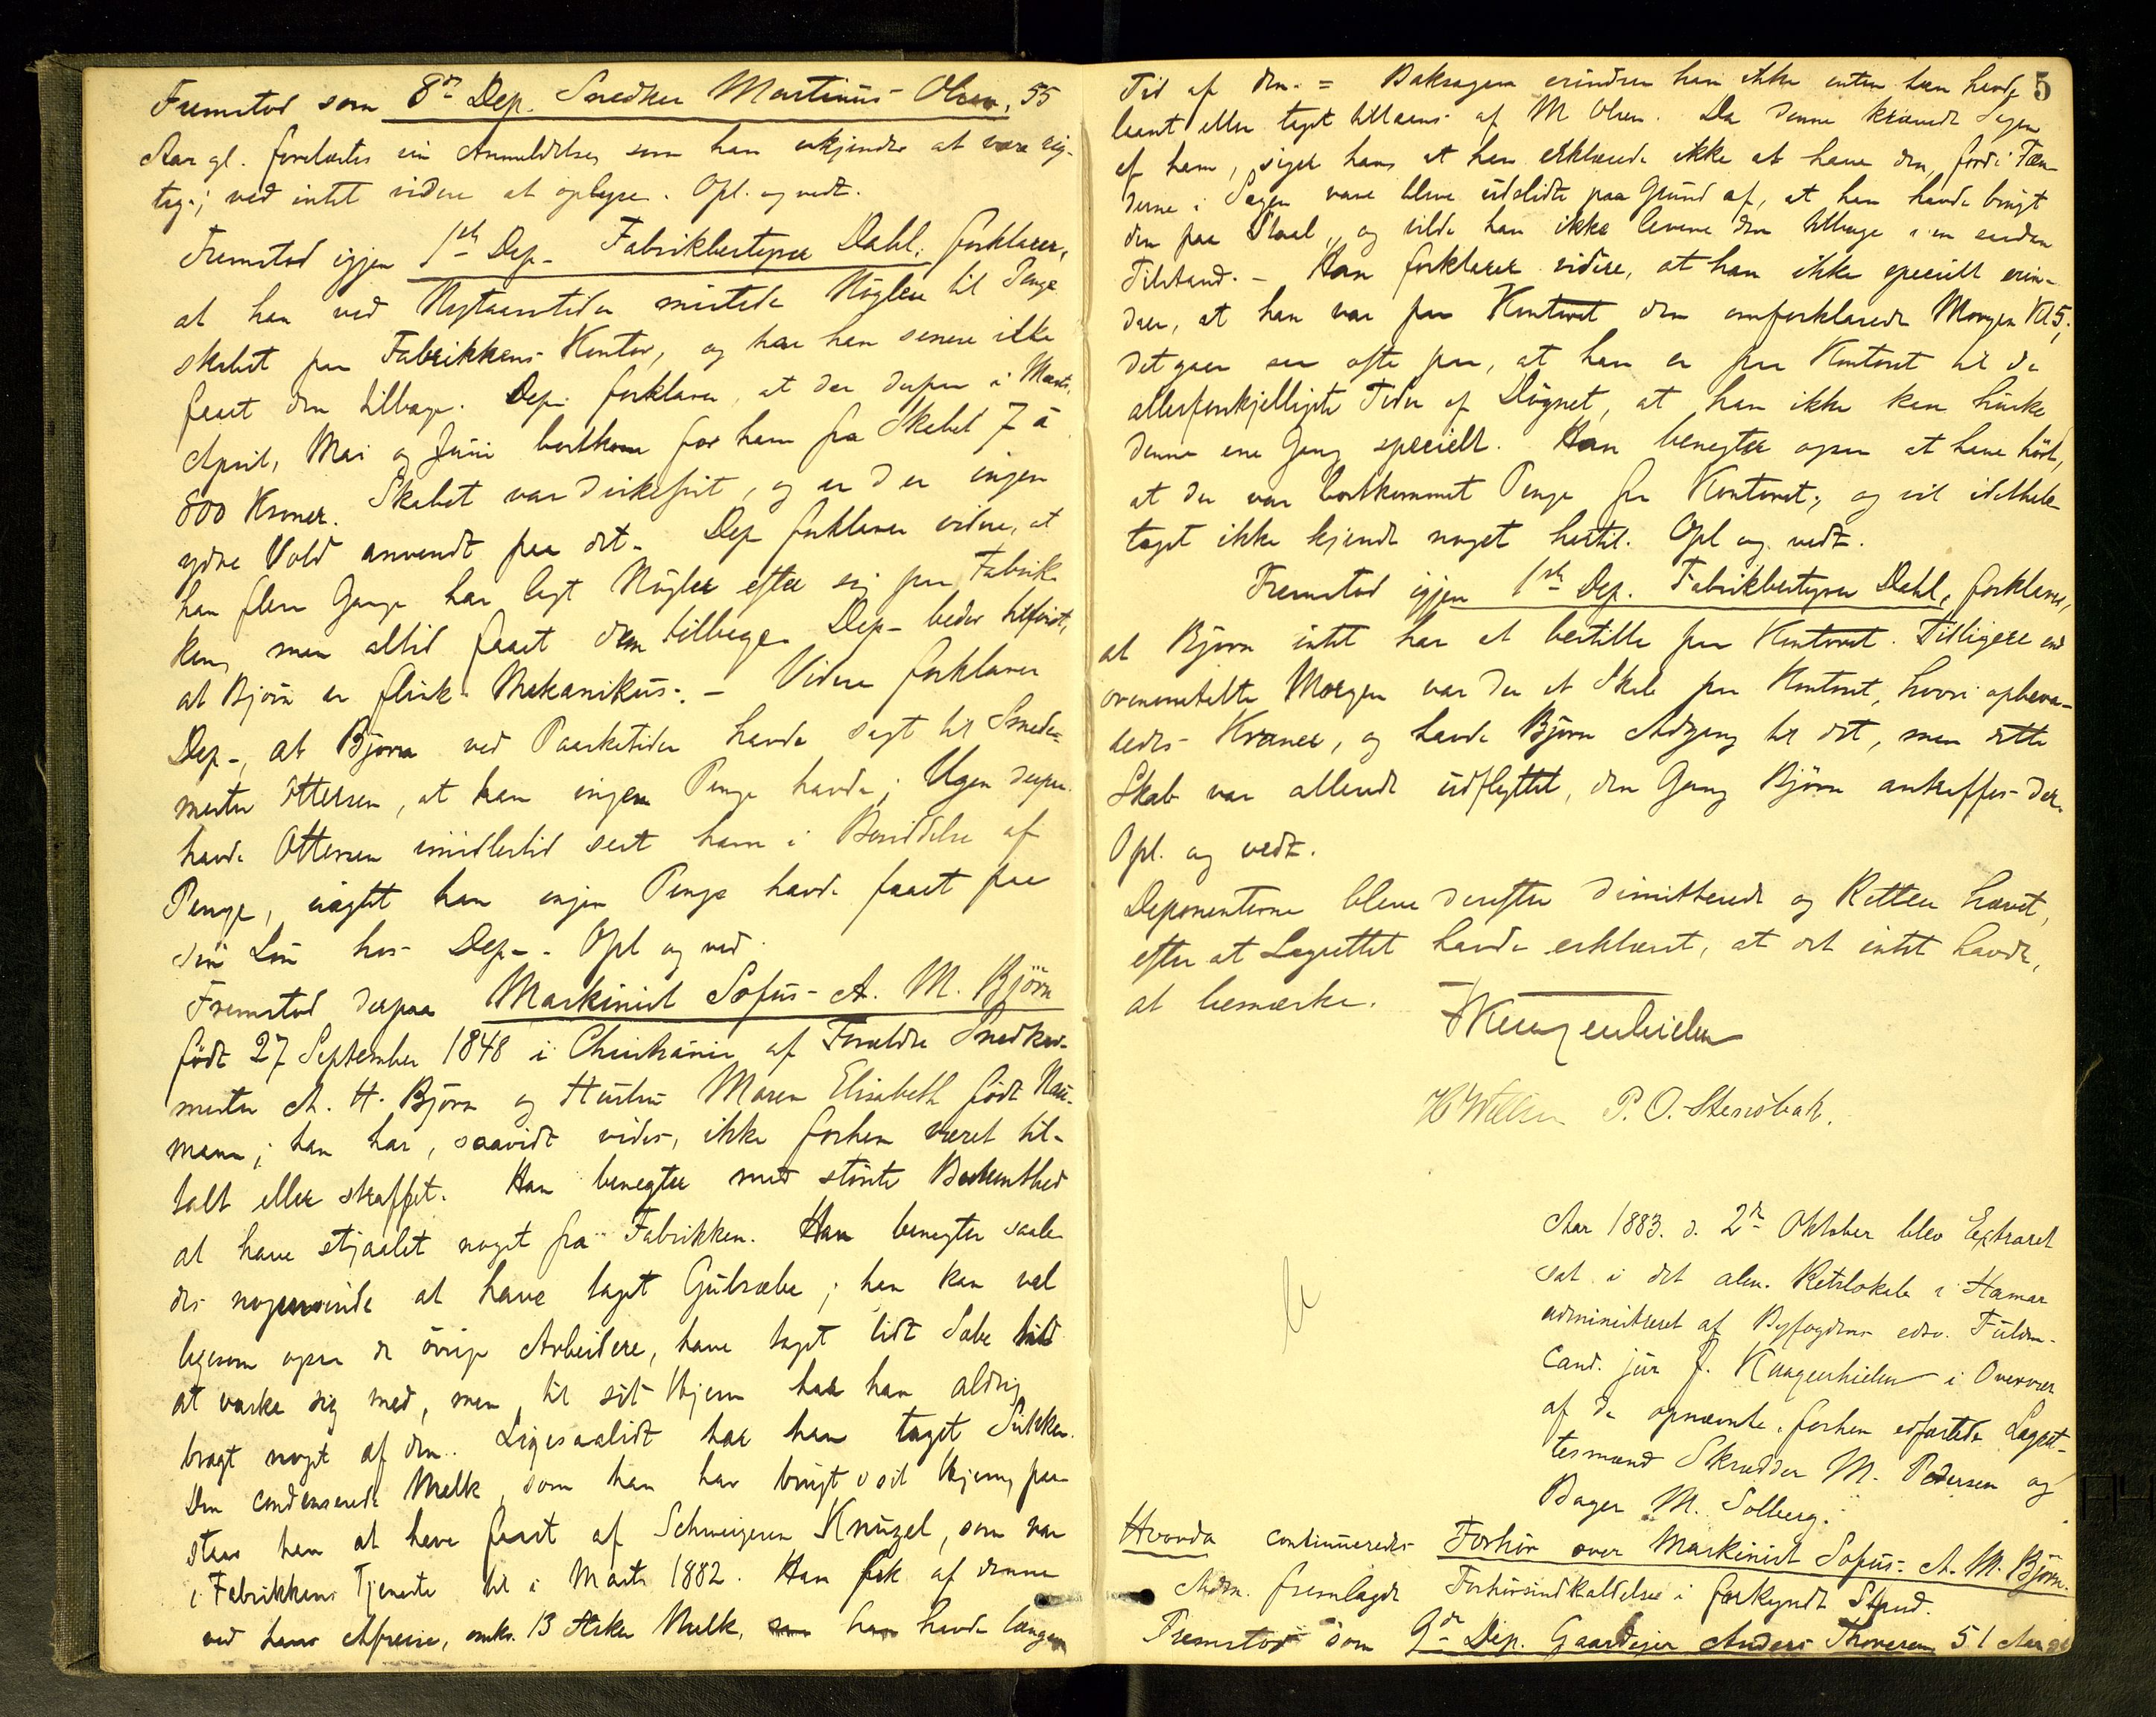 Fremstod som 8de Dep. Snedker Martinus Olsen, 55
Aar gl. forelæstes sin Anmeldelse, som han erkjender at være rig-
tig; ved intet videre at oplyse. Opl. og vedt.
Fremstod igjen 1ste Dep. Fabrikbestyrer Dahl, forklarer,
at han ved Nytaarstider mistede Nøglen til Penge-
skabet paa Fabrikkens Kontor, og har han senere ikke
faaet den tilbage. Dep. forklarer, at der derpaa i Marts,
April, Mai og Juni bortkom for ham fra Skabet 7 à
800 Kroner. Skabet var dirkefrit, og er der ingen
ydre Vold anvendt paa det. Dep. forklarer videre, at
han flere Gange har lagt Nøgler efter sig paa Fabrik-
ken, men altid faaet dem tilbage. Dep. beder tilført,
at Bjørn er flink Mekanikus. – Videre forklarer
Dep., at Bjørn ved Paasketider havde sagt til Smede-
mester Ottersen, at han ingen Penge havde; Ugen derpaa
havde Ottersen imidlertid seet ham i Besiddelse af
Penge, uagtet han ingen Penge havde faaet paa
sin Løn hos Dep. – Opl og ved.
Fremstod derpaa Maskinist Sofus A. M. Bjørn
født 27 September 1848 i Christiania af Forældre Snedker-
mester A. H. Bjørn og Hustru Maren Elisabeth født Nau-
mann; han har, saavidt vides, ikke forhen været til-
talt eller straffet. Han benegter med største Bestemthed
at have stjaalet noget fra Fabrikken. Han benegter saale-
des nogensinde at have taget Gulsæbe; han kan vel
ligesom ogsaa de øvrige Arbeidere, have taget lidt Sæbe
at vaske sig med, men til sit Hjem har han aldrig
bragt noget af den. Ligesaalidt har han taget Sukker.
Den condenserede Melk, som han har brugt i sit Hjem, paa-
staar han at have faaet af Schweizeren Knüzel, som var
i Fabrikkens Tjeneste til i Marts 1882. Han fik af denne
ved hans Afreise, omkr. 13 Æsker Melk, som han havde længere
5
Tid af den. = Baksagen erindrer han ikke enten han havde
laant eller taget tillaans af M Olsen. Da denne krævede Sagen
af ham, siger han, at han erklærede ikke at have den, fordi Tæn-
derne i Sagen vare bleve udslidte paa Grund af, at han havde brugt
den paa Staal, og vilde han ikke levere den tilbage i en saadan
Tilstand. – Han forklarer videre, at han ikke specielt erin-
drer, at han var paa Kontoret den omforklarede Morgen Kl 5;
det gaar saa ofte paa, at han er paa Kontoret til de
allerforskjelligste Tider af Døgnet, at han ikke kan huske
denne ene Gang specielt. Han benegter ogsaa at have hørt,
at der var bortkommet Penge fra Kontoret, og vil idethele-
taget ikke kjende noget hertil. Opl og vedt.
Fremstod igjen 1ste Dep. Fabrikbestyrer Dahl, forklarer,
at Bjørn intet har at bestille paa Kontoret. Tidligere end
ovenomtalte Morgen var der et Skab paa Kontoret, hvori opbeva-
redes Kraner, og havde Bjørn Adgang til det, men dette
Skab var allerede udflyttet, den Gang Bjørn antraffes der.
Opl. og vedt.
Deponenterne bleve derefter dimitterede og Retten hævet,
efter at Lagrettet havde erklæret, at det intet havde
at bemærke.
P. O. Stensbak.
Aar 1883. d. 2de Oktober blev Extraret
sat i det alm. Retslokale i Hamar
administreret af Byfogdens edsv. Fuldm.
Cand. jur J. Knagenhielm i Overvær
af de opnævnte, forhen edfæstede Lagret-
tesmænd Skrædder M. Pedersen og
Bager M. Solberg.
Hvorda continueredes Forhør over Maskinist Sofus A. M. Bjørn.
Adm. fremlagde Forhørsindkaldelse i forkyndt Stand.
Fremstod som 9de Dep. Gaardeier Anders 51 Aar gl